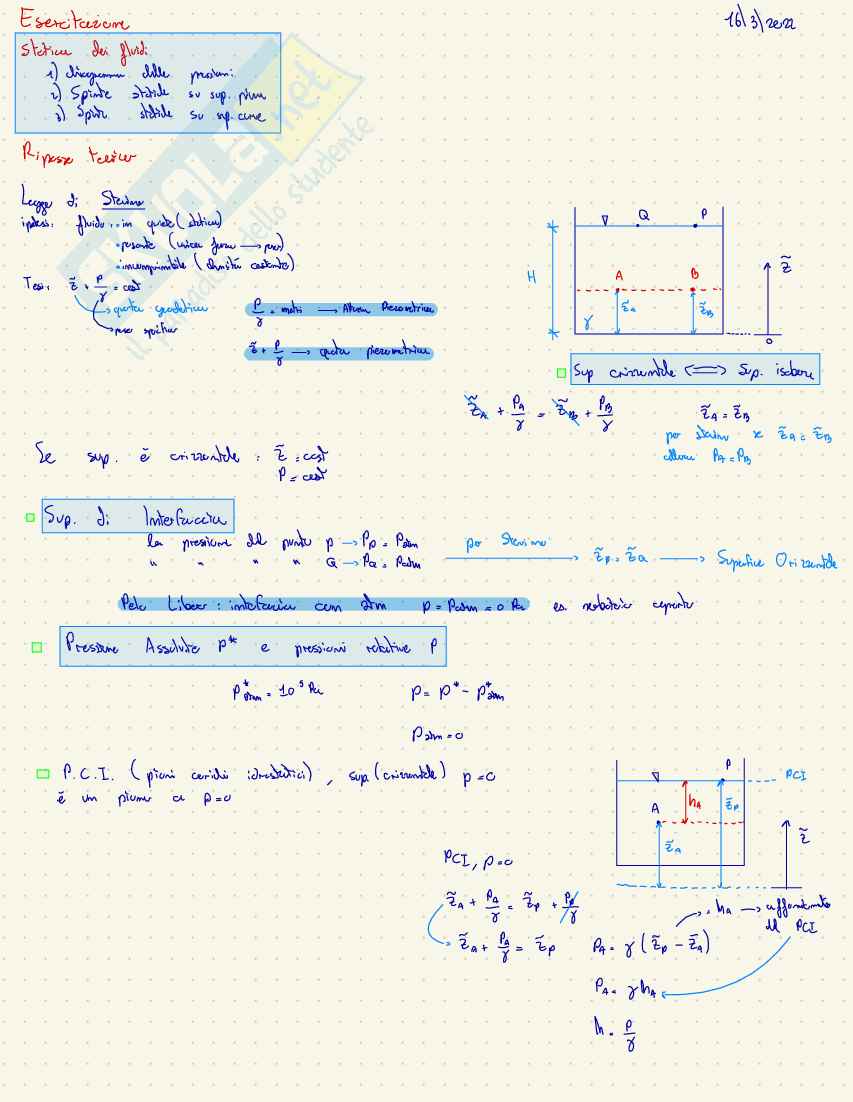 Esercitazione
16\3\2022
Statica dei fluidi
1) diagramma delle pressioni.
2) Spinte statiche su sup. piane
3) Spinte statiche su sup. curve
SKUOLA.net
il paradiso dello studente
Ripasso teorico
Legge di Stevino
ipotesi: fluido: in quiete (statica)
• pesante (unica forza → peso)
• incomprimibile (densità costante)
Tesi: z̃ + P/γ = cost
→ quota geodetica
→ peso specifico
P/γ = metri → Altezza Piezometrica
z̃ + P/γ → quota piezometrica
Q P
H A B z̃
z̃A z̃B
γ
0
Sup orizzontale ⟺ Sup. isobara
z̃A + PA/γ = z̃B + PB/γ z̃A = z̃B
per stevino se z̃A = z̃B
allora PA = PB
Se sup. è orizzontale : z̃ = cost
P = cost
Sup. di Interfaccia
la pressione del punto P → PP = Patm
" " " " Q → PQ = Patm
per Stevino → z̃P = z̃Q → Superficie Orizzontale
Pelo Libero : interfaccia con atm p = Patm = 0 Pa es. serbatoio aperto
Pressione Assoluta p* e pressioni relative P
P*atm = 10⁵ Pa p = p* - p*atm
Patm = 0
P.C.I. (piani carichi idrostatici), sup (orizzontale) p = 0
è un piano a p=0
P PCI
A hA z̃P
z̃A z̃
PCI, p=0
z̃A + PA/γ = z̃P + PP/γ
z̃A + PA/γ = z̃P
PA = γ (z̃P - z̃A)
hA → affondamento
dal PCI
PA = γ hA
h = P/γ